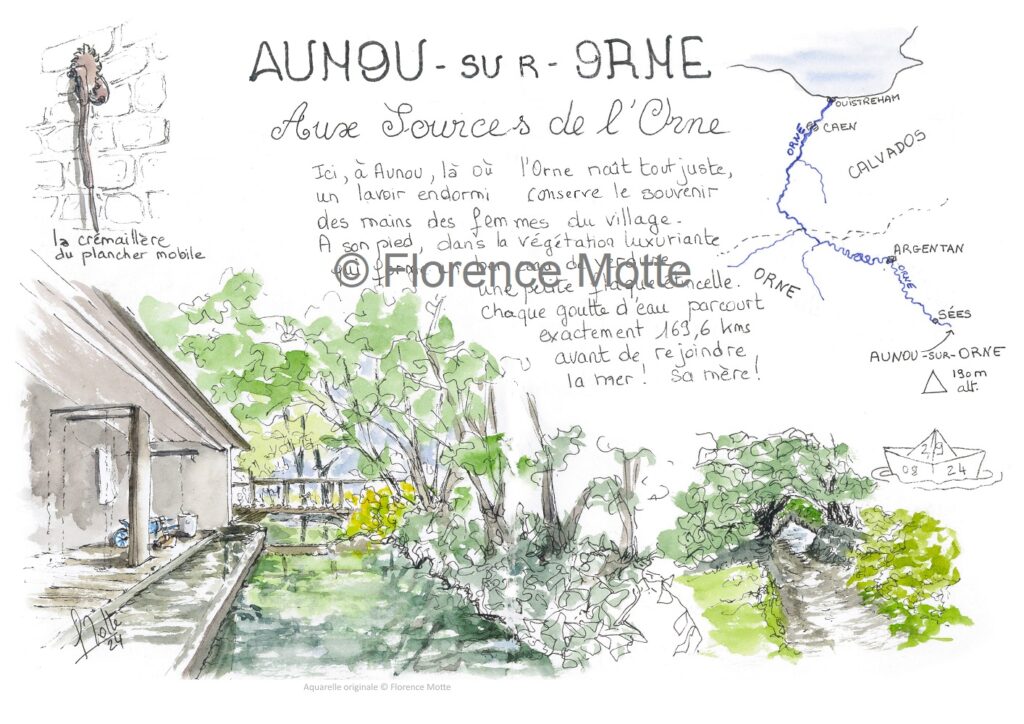 AUNOU - SUR - ORNE
Aux Sources de l'Orne
Ici, à Aunou, là où l'Orne naît tout juste,
un lavoir endormi conserve le souvenir
des mains des femmes du village.
A son pied, dans la végétation luxuriante
qui forme un de verdure
une petite flaque étincelle.
Chaque goutte d'eau parcourt
exactement 169,6 kms
avant de rejoindre
la mer ! sa mère !
© Florence Motte
la crémaillère
du plancher mobile
OUISTREHAM
CAEN
ORNE
CALVADOS
ARGENTAN
ORNE
ORNE
SÉES
AUNOU-SUR-ORNE
190m
alt.
29
08 24
Motte
24
Aquarelle originale © Florence Motte